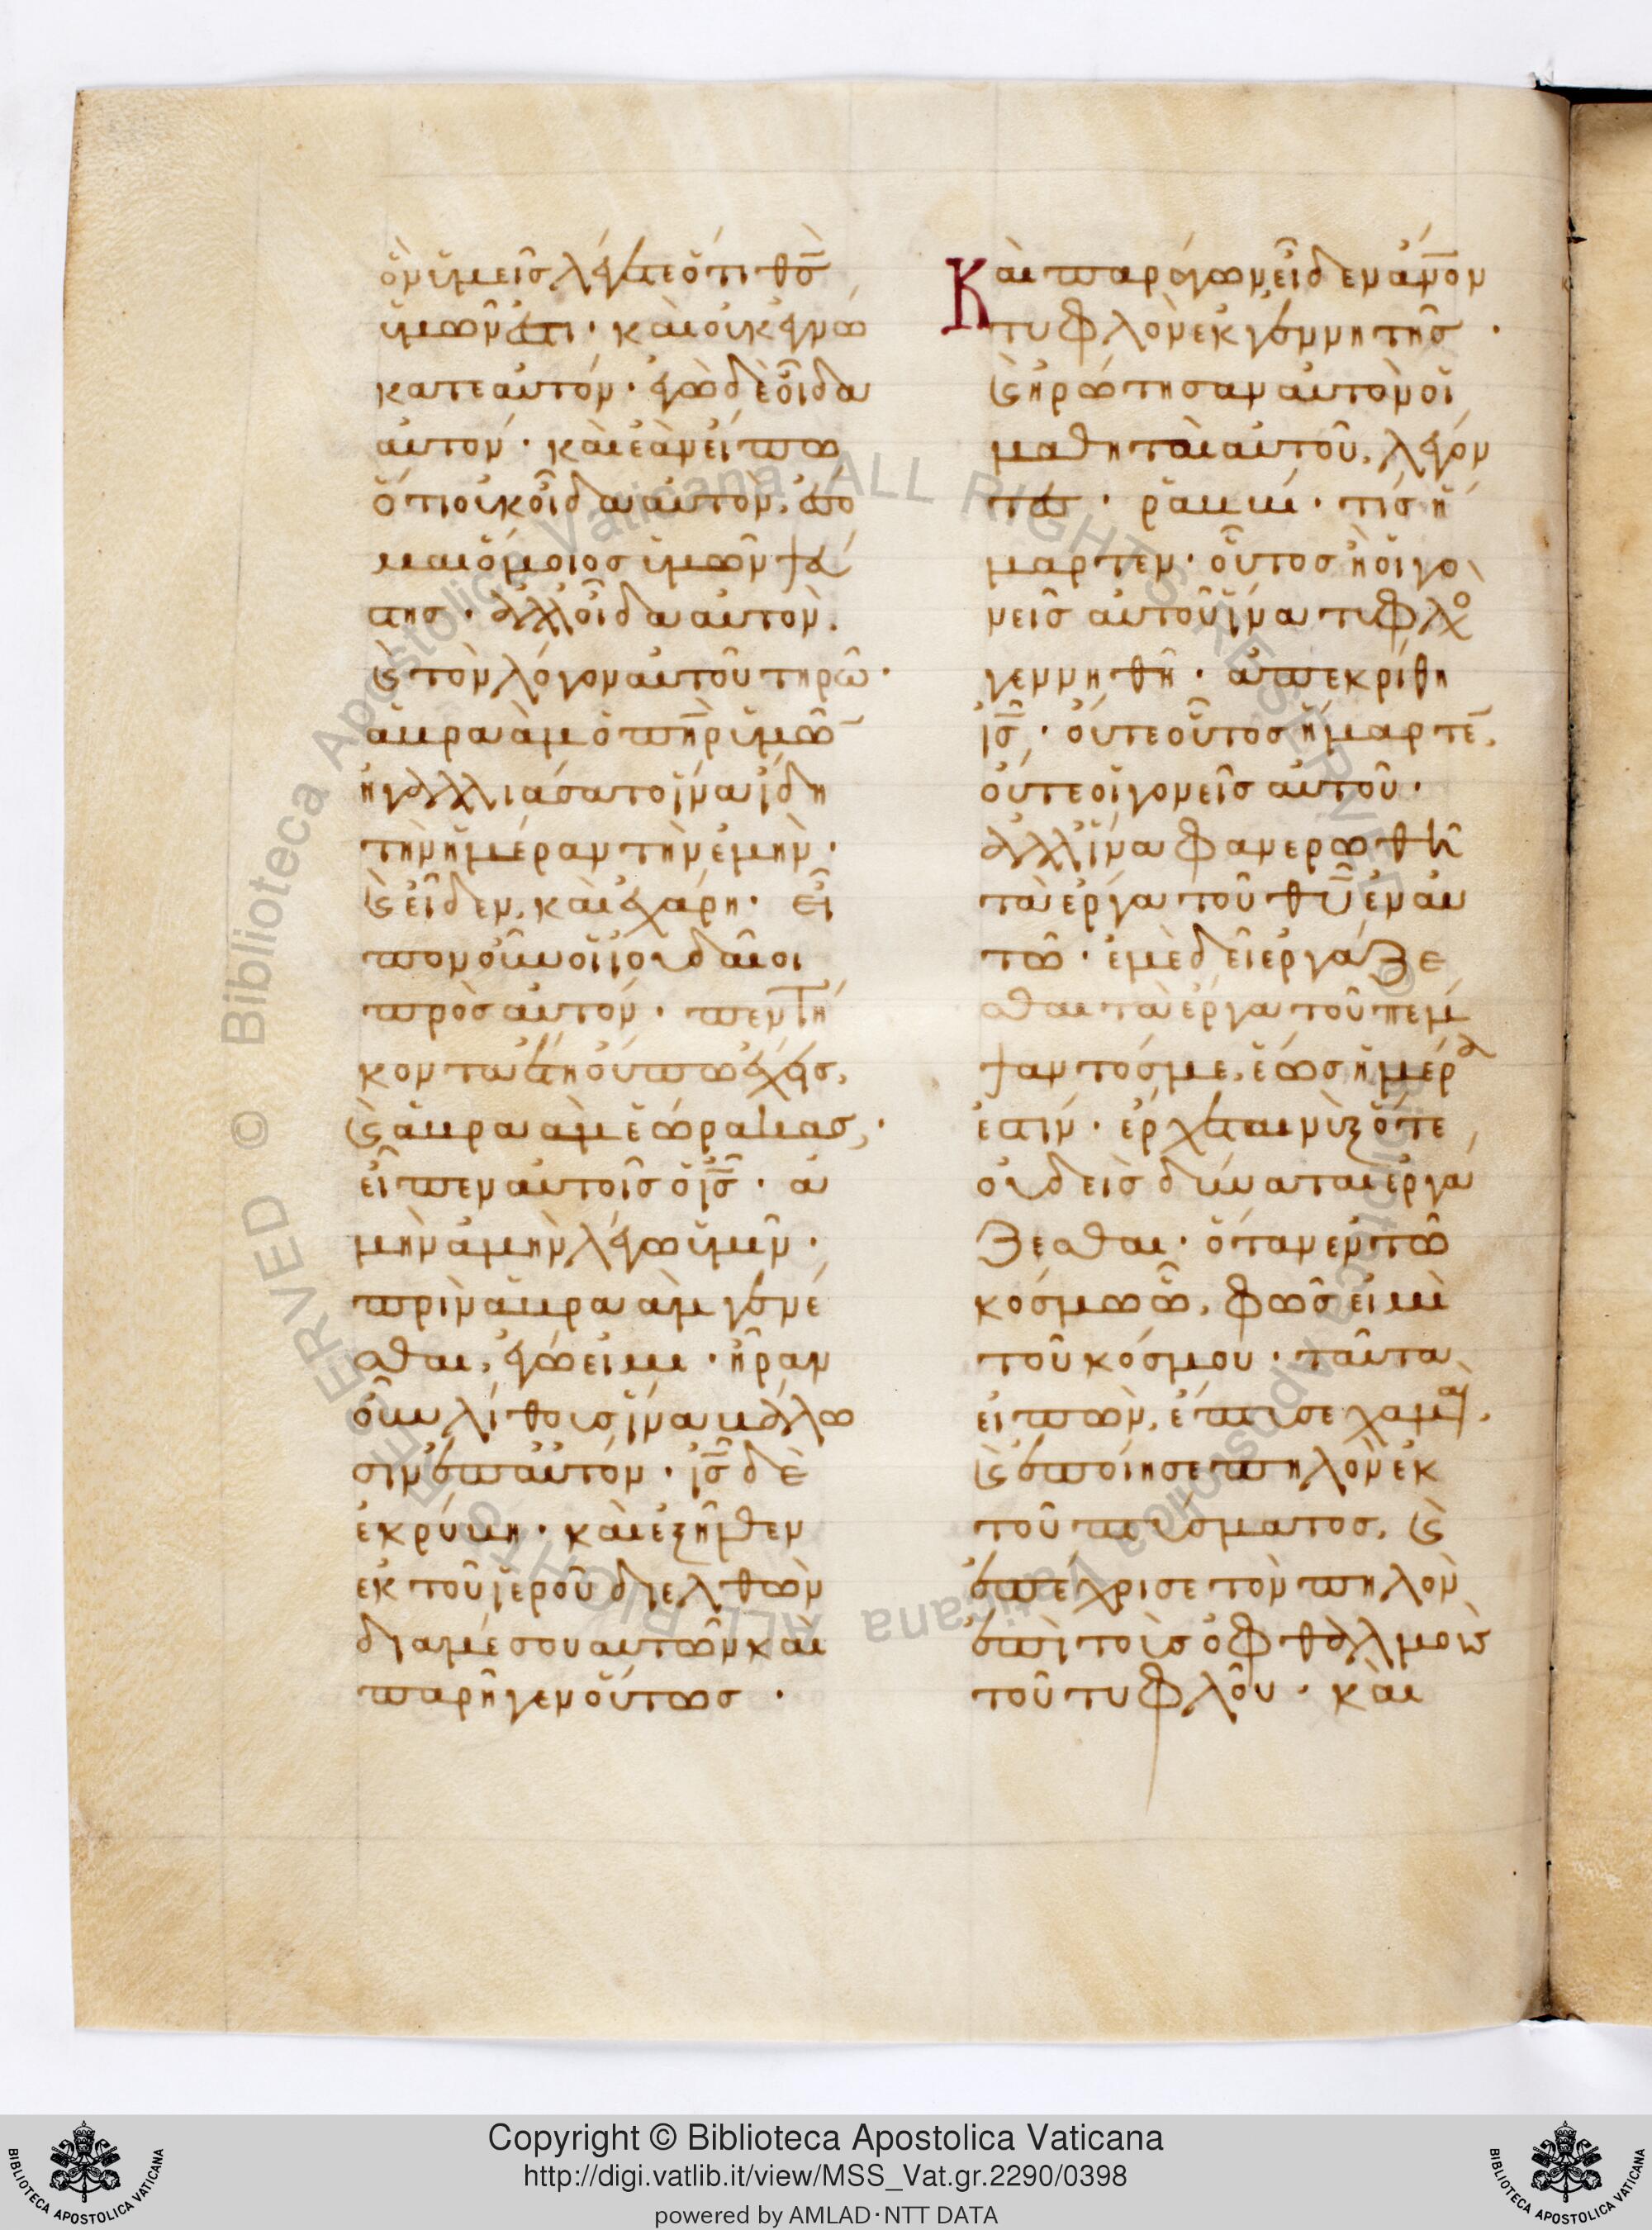 ὃν ὑμεῖς λέγετε ὅτι θς̅
ὑμῶν ἐστι· καὶ οὐκ ἐγνώ
κατε αὐτόν· ἐγὼ δὲ οἶδα
αὐτόν· καὶ ἐὰν εἴπω
ὅτι οὐκ οἶδα αὐτὸν, ἔσο
μαι ὅμοιος ὑμῶν ψεύ
στης· ἀλλ οἶδα αὐτὸν.
ϗ τὸν λόγον αὐτοῦ τηρῶ·
ἀβραὰμ ὁ πηρ̅ ὑμῶ
ἠγαλλιάσατο ἵνα ἴδη
τὴν ἡμέραν τὴν ἐμὴν·
ϗ εἶδεν, καὶ ἐχάρη· εἶ
πον οὖν οἱ ἰουδαῖοι
πρὸς αὐτόν· πεντή
κοντα ἔτη οὔπω ἔχεις,
ϗ ἀβραὰμ ἑώρακας,·
εἶπεν αὐτοῖς ὁ ις̅· ἀ
μὴν ἀμὴν λέγω ὑμῖν·
πρὶν ἀβραὰμ γενέ
σθαι, ἐγώ εἰμι· ἦραν
οὖν λίθους ἵνα βάλω
σιν ἐπ αὐτόν· ις̅ δὲ
ἐκρύβη· καὶ ἐξῆλθεν
ἐκ τοῦ ἱεροῦ διελθὼν
διαμέσου αὐτῶν καὶ
παρῆγεν οὕτως·
Καὶ παράγων εἶδεν ἀνο̅ν
τυφλὸν ἐκ γεννητῆς·
ϗ ἠρώτησαν αὐτὸν οἱ
μαθηταὶ αὐτοῦ, λέγον
τες· ῥαββί· τίς ἥ
μαρτεν· οὗτος ἢ οἱ γο
νεῖς αὐτοῦ ἵνα τυφλο
γεννηθῆ· ἀπεκρίθη
ις̅,· οὔτε οὗτος ἥμαρτε̅,
οὔτε οἱ γονεῖς αὐτοῦ·
ἀλλ ἵνα φανερωθῆ
τὰ ἔργα τοῦ θυ̅ ἐν αυ
τῶ· ἐμὲ δεῖ ἐργάζε
σθαι τὰ ἔργα τοῦ πέμ
ψαντός με, ἕως ἡμέρα
ἐστίν· ἔρχεται νὺξ ὅτε
οὐδεὶς δύναται ἐργά
ζεσθαι· ὅταν ἐν τῶ
κόσμω ὦ, φῶς εἰμὶ
τοῦ κόσμου· ταῦτα
εἰπὼν, ἔπτυσε χαμαί,
ϗ ἐποίησε πηλὸν ἐκ
τοῦ πτύσματος, ϗ
ἐπέχρισε τὸν πηλὸν
ἐπὶ τοὺς ὀφθαλμοὺς
τοῦ τυφλοῦ· καὶ
Copyright © Biblioteca Apostolica Vaticana
http://digi.vatlib.it/view/MSS_Vat.gr.2290/0398
powered by AMLAD·NTT DATA